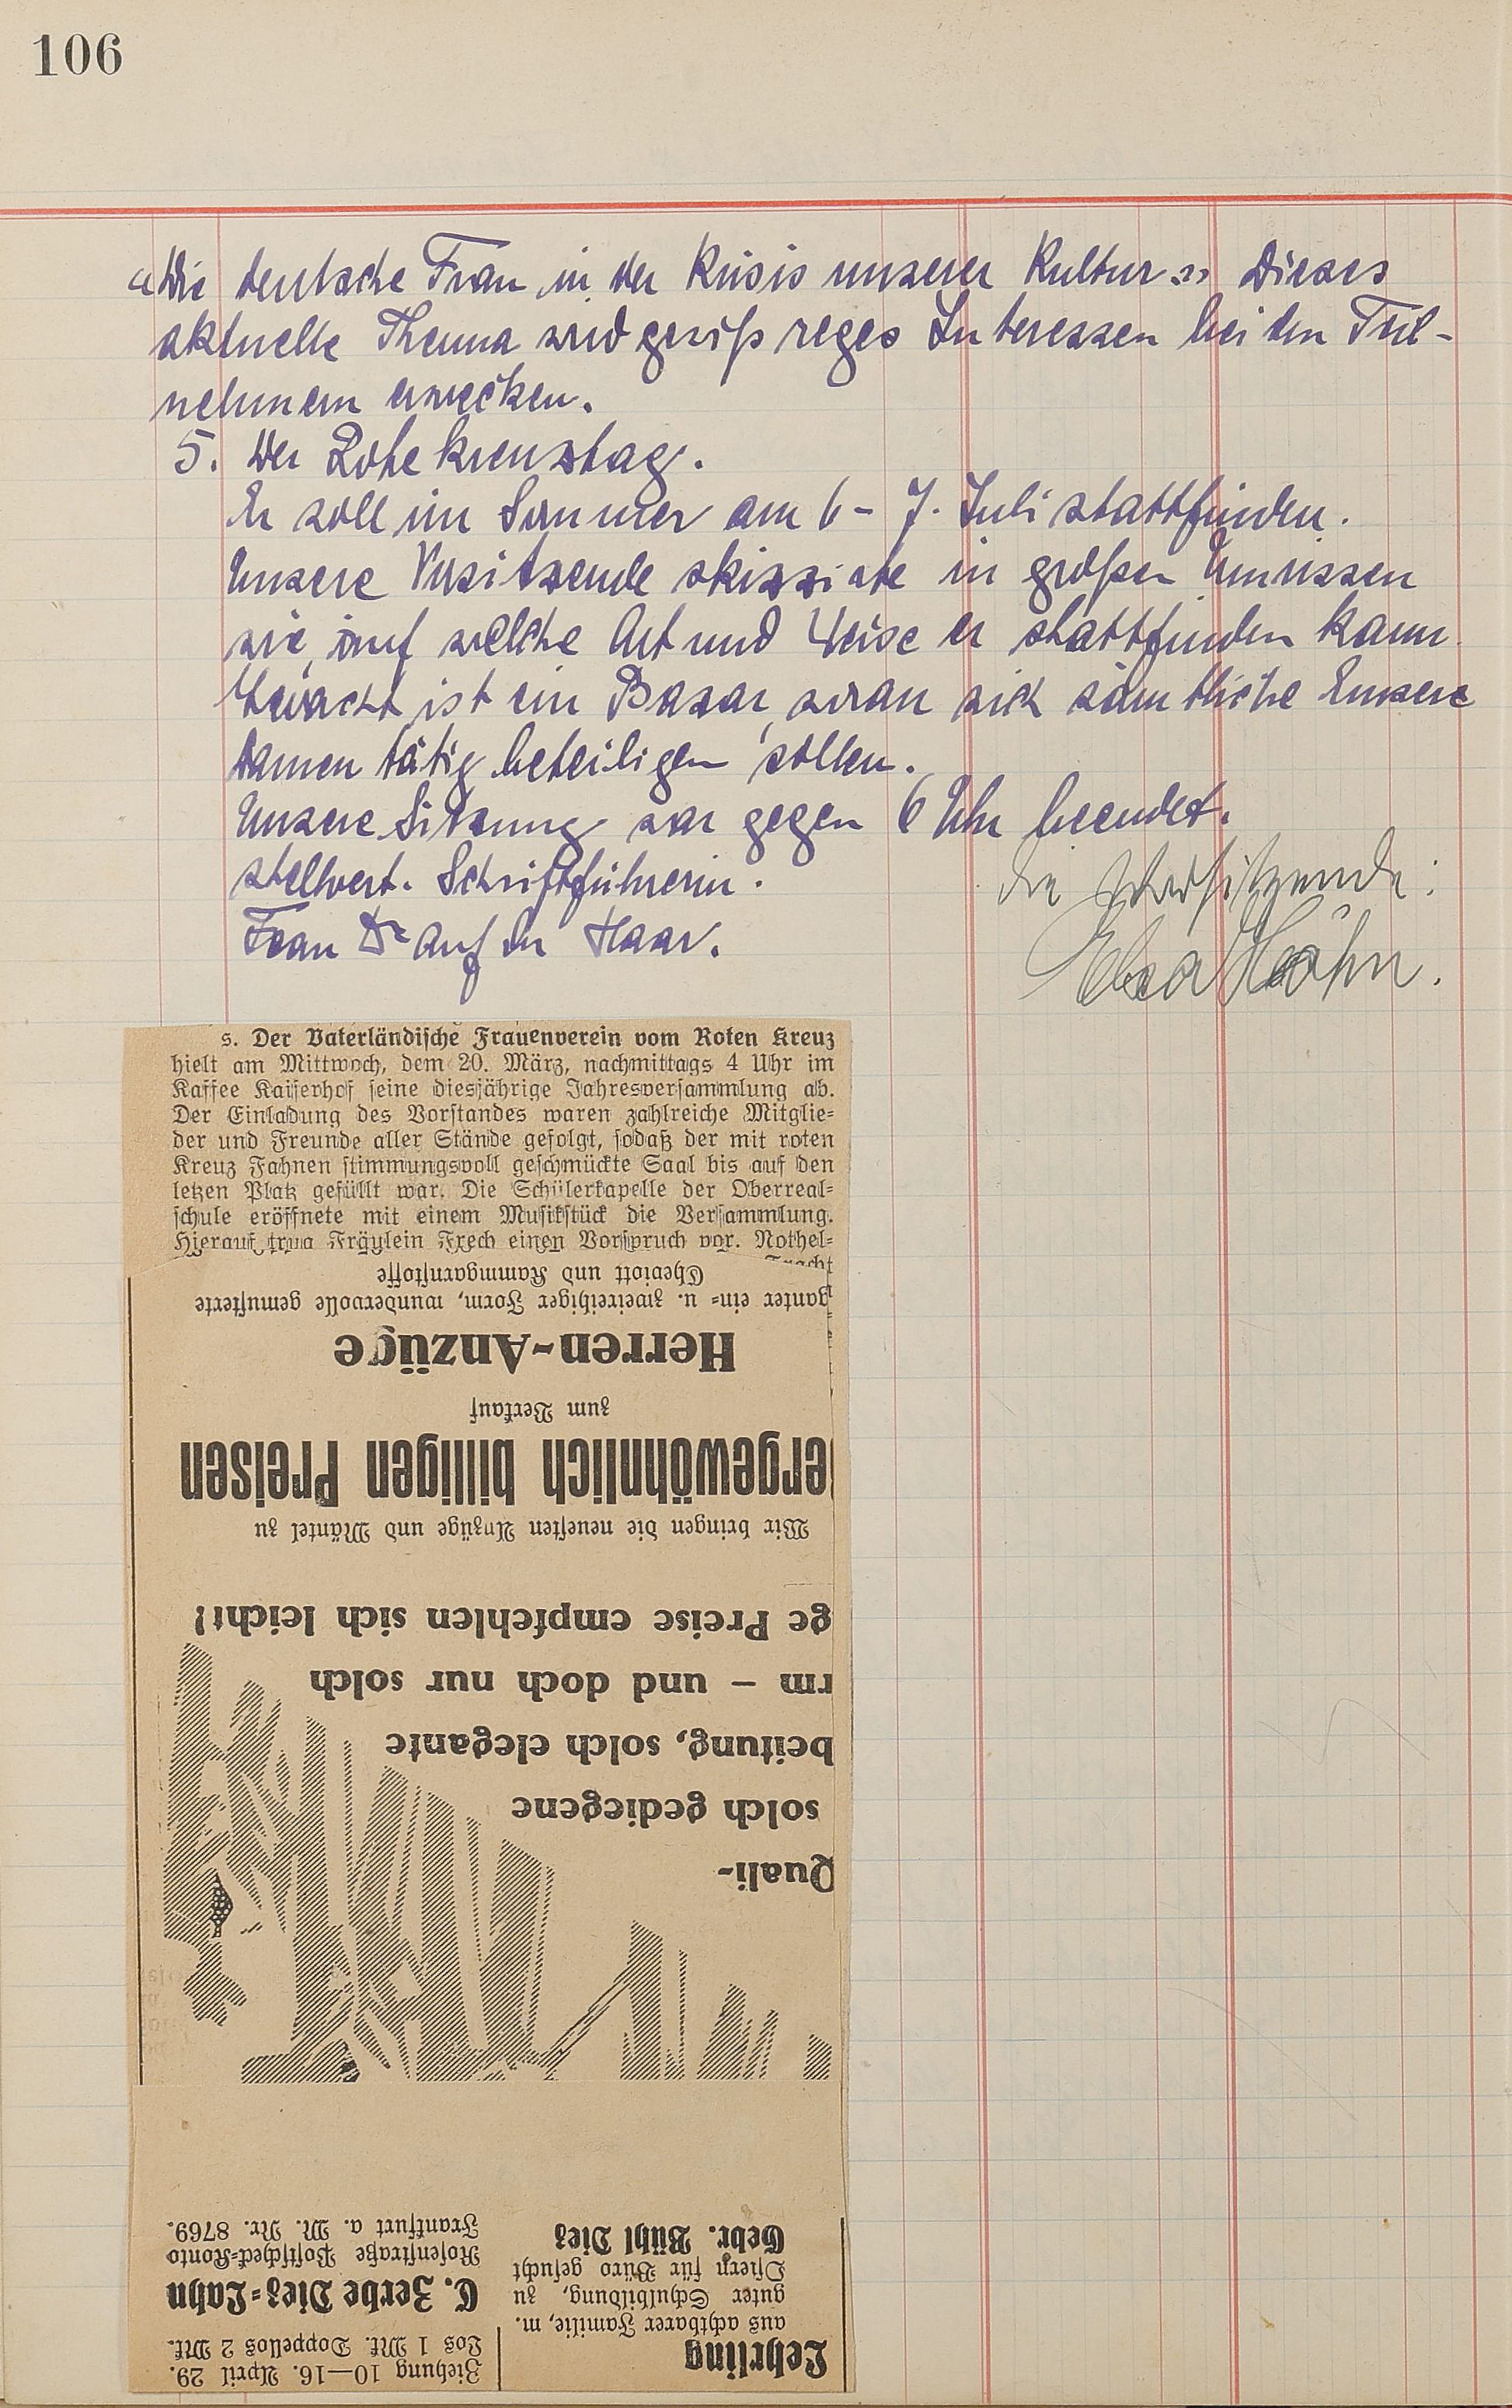 106
„Die deutsche Frau in der Krisis unserer Kultur." Dieses
aktuelle Thema wird gewiß reges Interessen bei den Teil-
nehmern erwecken.
5. Der Rote Kreuztag.
Er soll im Sommer am 6 - 7. Juli stattfinden.
Unsere Vorsitzende skizzierte in großen Umrissen
wie, auf welche Art und Weise er stattfinden kann.
Gedacht ist ein Basar, woran sich sämtliche
Damen tätig beteiligen sollen.
Unsere Sitzung war gegen 6 Uhr beendet.
stellvert. Schriftführerin.
Frau Dr auf der Haar.
die Vorsitzende:
s. Der Vaterländische Frauenverein vom Roten Kreuz
hielt am Mittwoch, dem 20. März, nachmittags 4 Uhr im
Kaffee Kaiserhof seine diesjährige Jahresversammlung ab.
Der Einladung des Vorstandes waren zahlreiche Mitglie-
der und Freunde aller Stände gefolgt, sodaß der mit roten
Kreuz Fahnen stimmungsvoll geschmückte Saal bis auf den
letzen Platz gefüllt war. Die Schülerkapelle der Oberreal-
schule eröffnete mit einem Musikstück die Versammlung.
Hierauf trug Fräulein Frech einen Vorspruch vor. Nothel-
Lehrling
aus achtbarer Familie, m.
guter Schulbildung, zu
Ostern für Büro gesucht
Gebr. Bühl Diez
Ziehung 10—16. April 29.
Los 1 Mk. Doppellos 2 Mk.
C. Zerbe Diez-Lahn
Rosenstraße Postscheck-Konto
Frankfurt a. M. Nr. 8769.
Quali-
solch gediegene
beitung, solch elegante
rm – und doch nur solch
ge Preise empfehlen sich leicht!
Wir bringen die neuesten Anzüge und Mäntel zu
ergewöhnlich billigen Preisen
zum Verkauf
Herren-Anzüge
ganter ein- u. zweireihiger Form, wundervolle gemusterte
Cheviott und Kammgarnstoffe